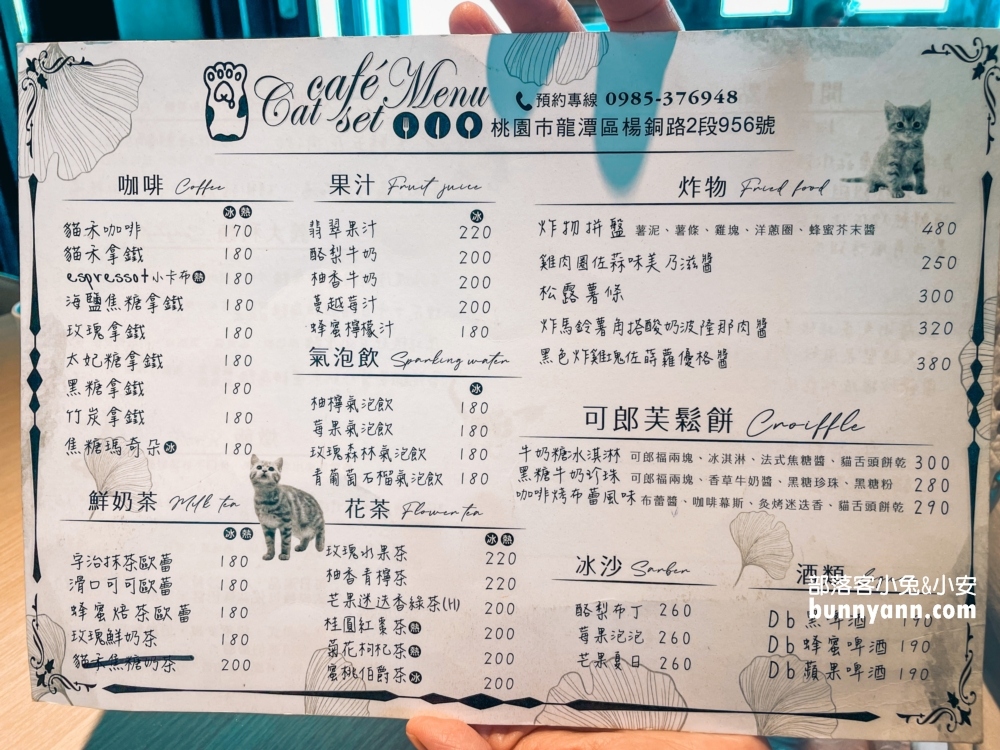 café Menu
Cat set
預約專線 0985-376948
桃園市龍潭區楊銅路2段956號
咖啡 Coffee
冰 熱
貓禾咖啡 170
貓禾拿鐵 180
espressot小卡布 熱 180
海鹽焦糖拿鐵 180
玫瑰拿鐵 180
太妃糖拿鐵 180
黑糖拿鐵 180
竹炭拿鐵 180
焦糖瑪奇朵 冰 180
鮮奶茶 Milk tea
冰 熱
宇治抹茶歐蕾 180
滑口可可歐蕾 180
蜂蜜焙茶歐蕾 180
玫瑰鮮奶茶 180
貓禾焦糖奶茶 200
果汁 Fruit juice
冰
翡翠果汁 220
酪梨牛奶 200
柚香牛奶 200
蔓越莓汁 200
蜂蜜檸檬汁 180
氣泡飲 Sparking water
冰
柚檸氣泡飲 180
莓果氣泡飲 180
玫瑰森林氣泡飲 180
青葡萄石榴氣泡飲 180
花茶 Flower tea
冰 熱
玫瑰水果茶 220
柚香青檸茶 220
芒果迷迭香綠茶(H) 200
桂圓紅棗茶 熱 200
菊花枸杞茶 熱 200
蜜桃伯爵茶 冰 200
炸物 Fried food
炸物拼盤 薯泥、薯條、雞塊、洋蔥圈、蜂蜜芥末醬 480
雞肉圈佐蒜味美乃滋醬 250
松露薯條 300
炸馬鈴薯角搭酸奶波隆那肉醬 320
黑色炸雞塊佐蒔蘿優格醬 380
可郎芙鬆餅 Croiffle
牛奶糖冰淇淋 可郎福兩塊、冰淇淋、法式焦糖醬、貓舌頭餅乾 300
黑糖牛奶珍珠 可郎福兩塊、香草牛奶醬、黑糖珍珠、黑糖粉 280
咖啡烤布蕾風味 布蕾醬、咖啡幕斯、炙烤迷迭香、貓舌頭餅乾 290
冰沙 Sarber
酪梨布丁 260
莓果泡泡 260
芒果夏日 260
酒類
Db黑啤酒 190
Db蜂蜜啤酒 190
Db蘋果啤酒 190
部落客小兔&小安
bunnyann.com